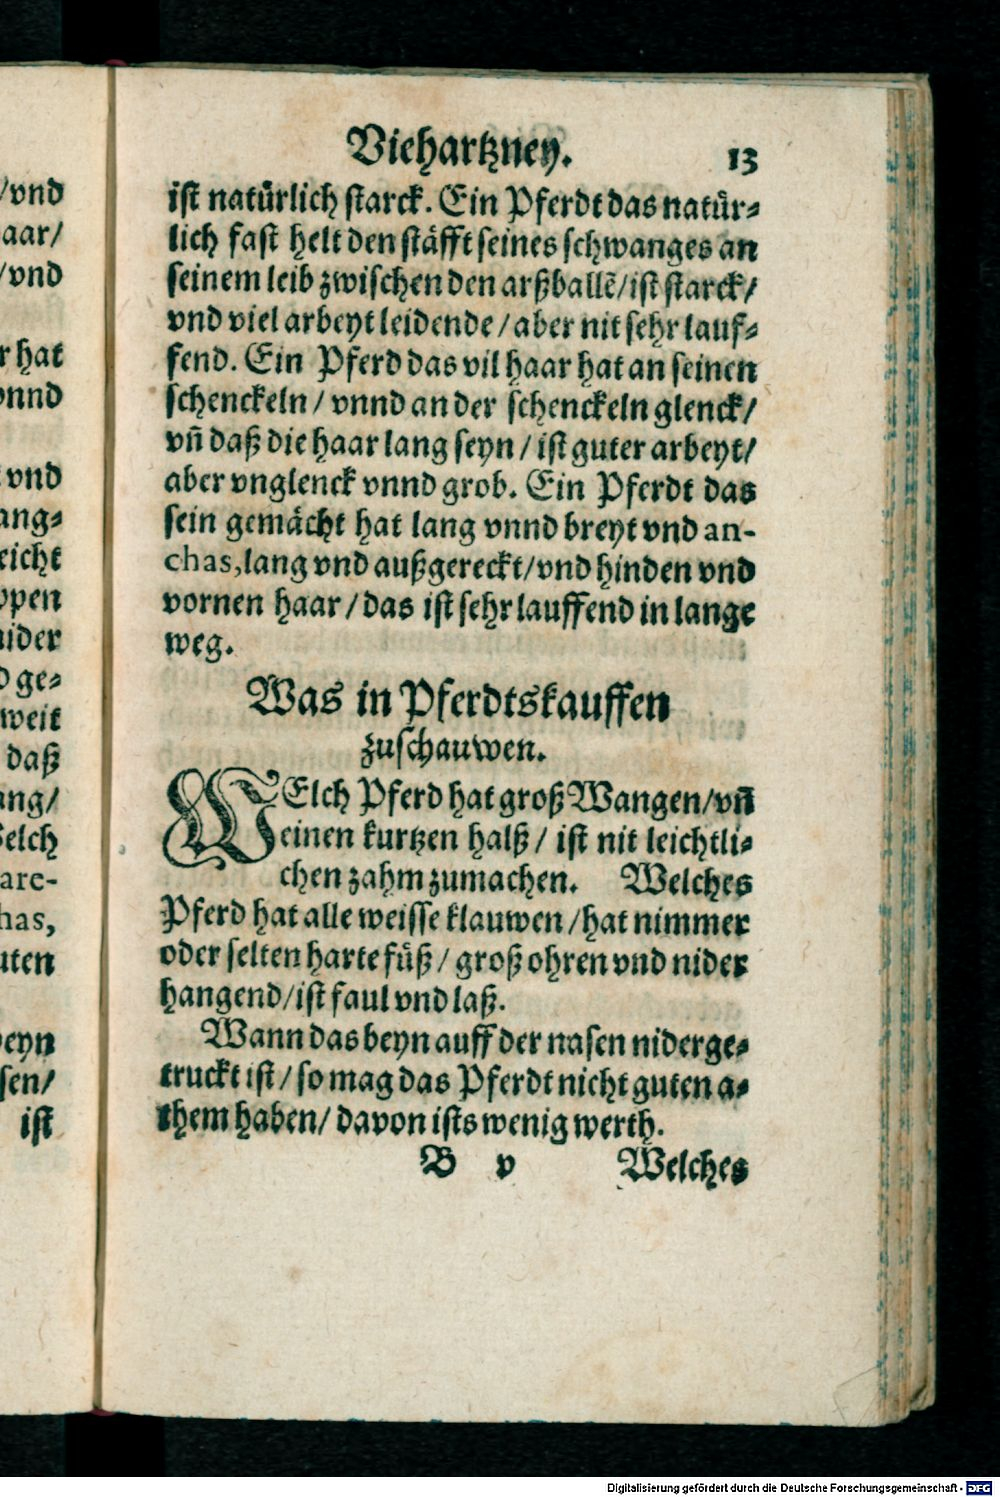 /vnd
aar/
/vnd
r hat
vnnd
vnd
ang⸗
eicht
ppen
nider
ge⸗
weit
daß
ang/
elch
are-
has,
uten
beyn
sen/
ist
Viehartzney. 13
ist natuͤrlich starck. Ein Pferdt das natuͤr⸗
lich fast helt den staͤfft seines schwanges an
seinem leib zwischen den arßballẽ/ ist starck/
vnd viel arbeyt leidende / aber nit sehr lauf⸗
fend. Ein Pferd das vil haar hat an seinen
schenckeln / vnnd an der schenckeln glenck/
vñ daß die haar lang seyn / ist guter arbeyt/
aber vnglenck vnnd grob. Ein Pferdt das
sein gemaͤcht hat lang vnnd breyt vnd an-
chas, lang vnd außgereckt/ vnd hinden vnd
vornen haar / das ist sehr lauffend in lange
weg.
Was in Pferdtskauffen
zuschauwen.
WElch Pferd hat groß Wangen/ vñ
einen kurtzen halß / ist nit leichtli⸗
chen zahm zumachen. Welches
Pferd hat alle weisse klauwen / hat nimmer
oder selten harte fuͤß / groß ohren vnd nider
hangend/ ist faul vnd laß.
Wann das beyn auff der nasen niderge⸗
truckt ist / so mag das Pferdt nicht guten a⸗
them haben/ davon ists wenig werth.
B v Welches
Digitalisierung gefördert durch die Deutsche Forschungsgemeinschaft - DFG